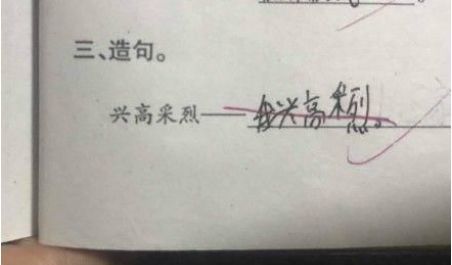 三、造句。
兴高采烈——我兴高采烈。